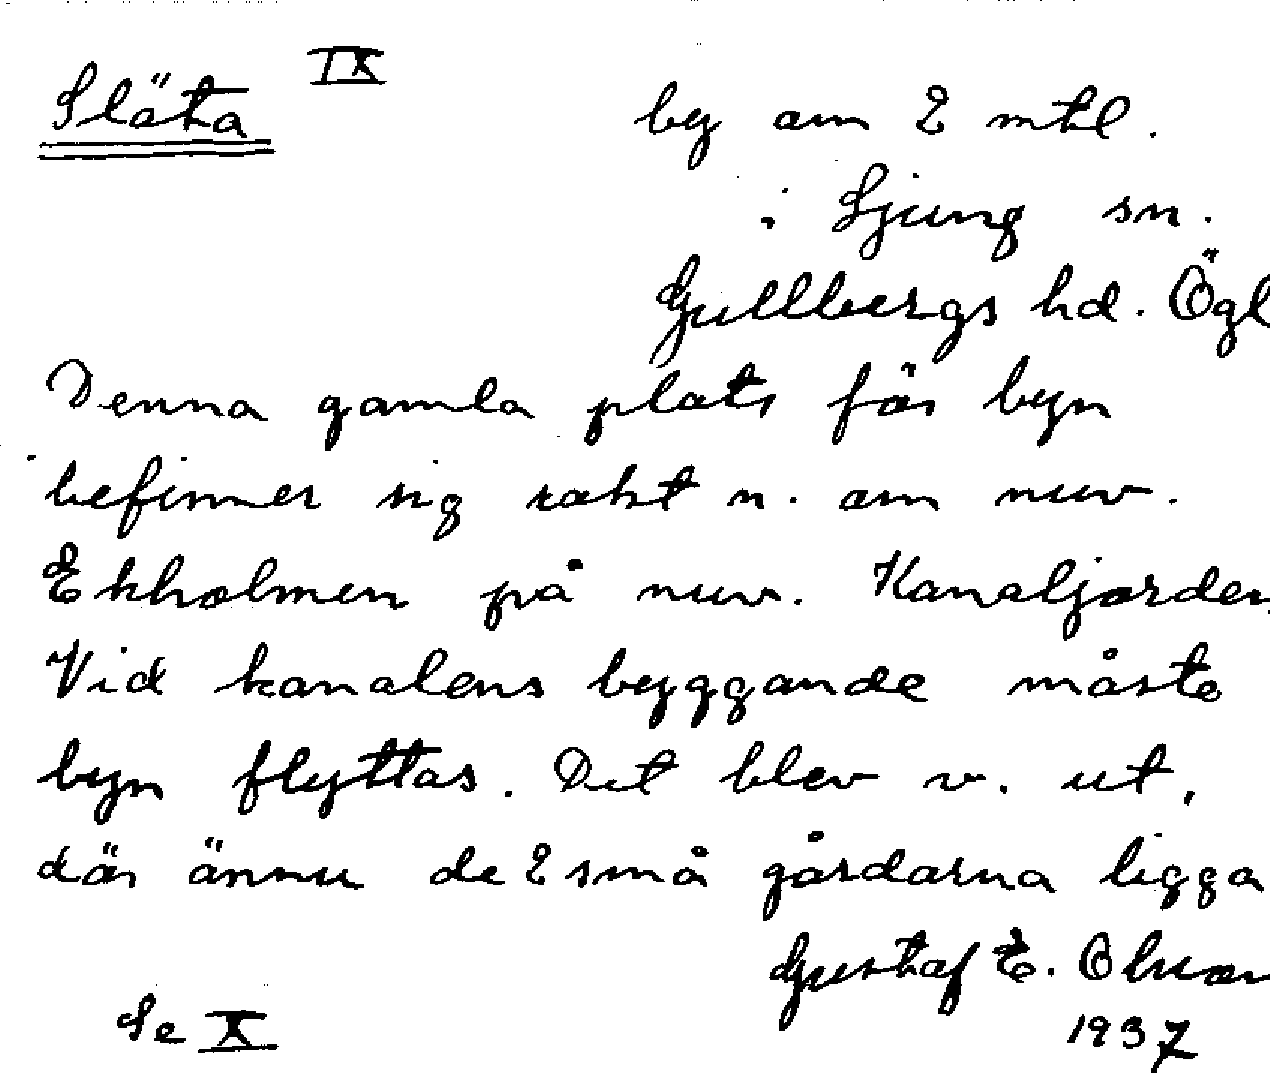 Släta IX
by om 2 mtl.
i Ljung sn.
Gullbergs hd. Ögl
Denna gamla plats för byn
befinner sig rakt n. om nuv.
Ekholmen på nuv. Kanaljorden.
Vid kanalens byggande måste
byn flyttas. Det blev v. ut,
där ännu de 2 små gårdarna ligga
Gustaf E. Olsson
1937
Se X